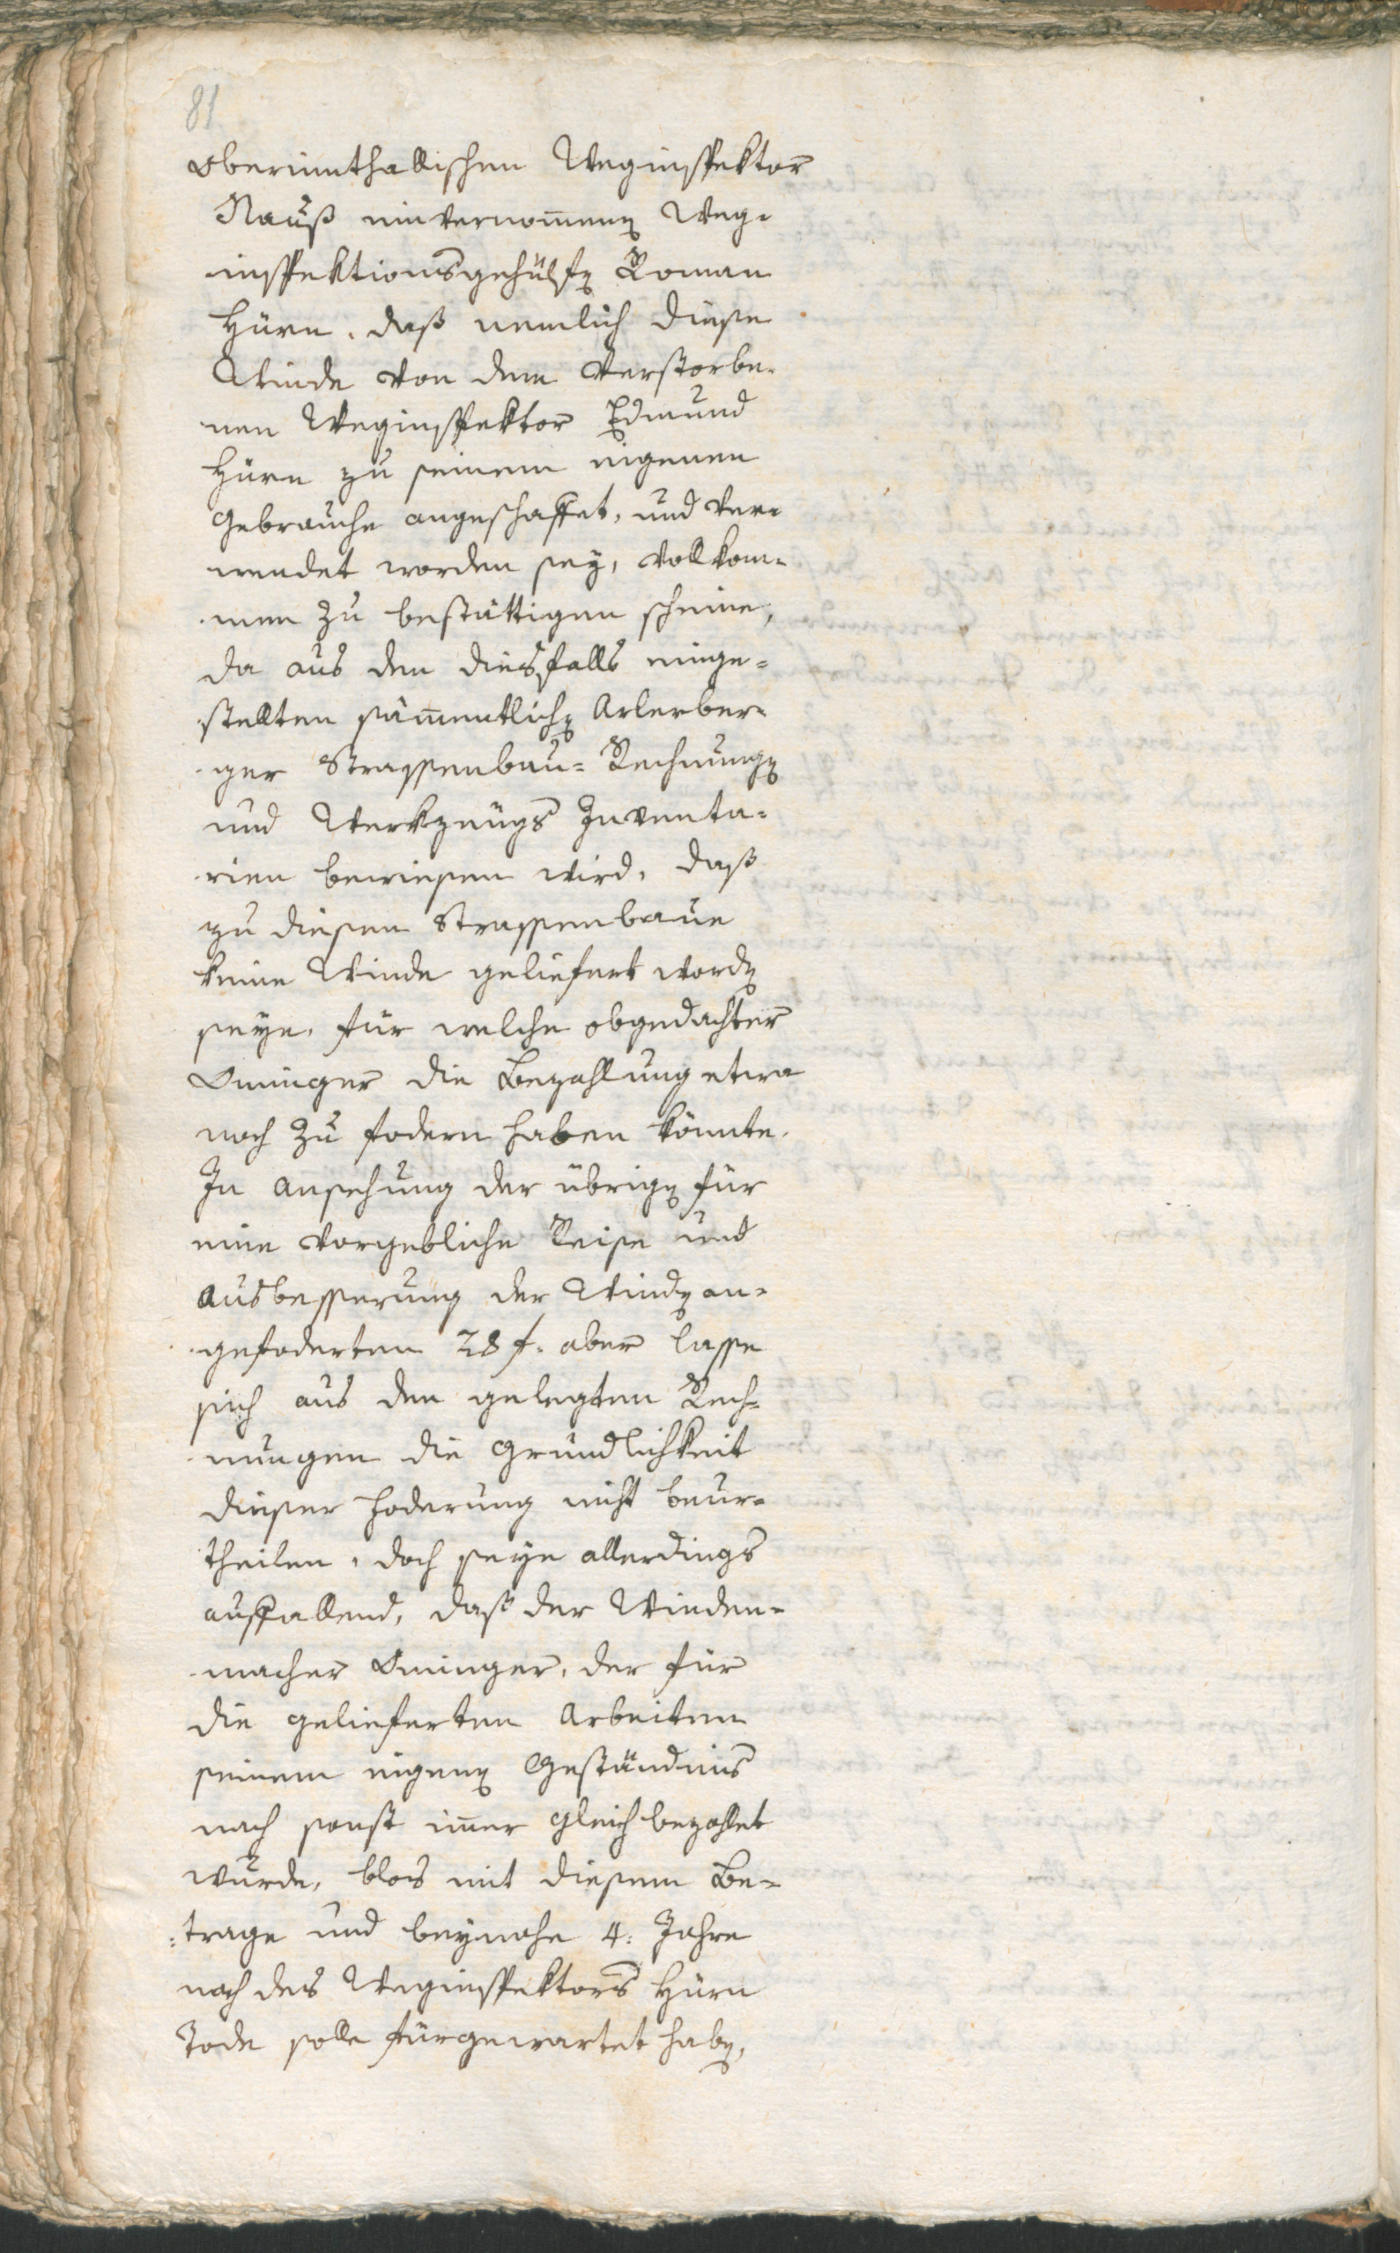 81
Oberinnthallischen Weginspektor
Nauß einvernom̄enen Weg-
inspektionsgehülfen Roman
Hürn, daß nemlich diese
Winde von dem verstorbe-
nen Weginspektor Edmund
Hürn zu seinem eigenen
Gebrauche angeschaffet, und ver-
wendet worden sey, vollkom-
men zu bestättigen scheine,
da aus den diesfalls einge-
stellten säm̄entlichen Arlerber-
ger Strassenbau- Rechnungen
und Werkzeugs Inventa-
rien bewiesen wird, daß
zu diesem Strassenbaue
keine Winde geliefert worden
seye, für welche obgedachter
Ominger die Bezahlung etwa
noch zu fodern haben könnte.
In Ansehung der übrigen für
eine vorgebliche Reise und
Ausbesserung der Winden an-
gefoderten 28 f. aber lasse
sich aus den gelegten Rech-
nungen die Gründlichkeit
dieser Foderung nicht beur-
theilen, doch seye allerdings
auffallend, daß der Winden-
macher Ominger, der für
die gelieferten Arbeiten
seinem eigenen Geständnis
nach sonst im̄er gleich bezahlet
wurde, blos mit diesem Be-
trage und beynahe 4: Jahre
nach des Weginspektors Hürn
Tode solle fürgewartet haben,